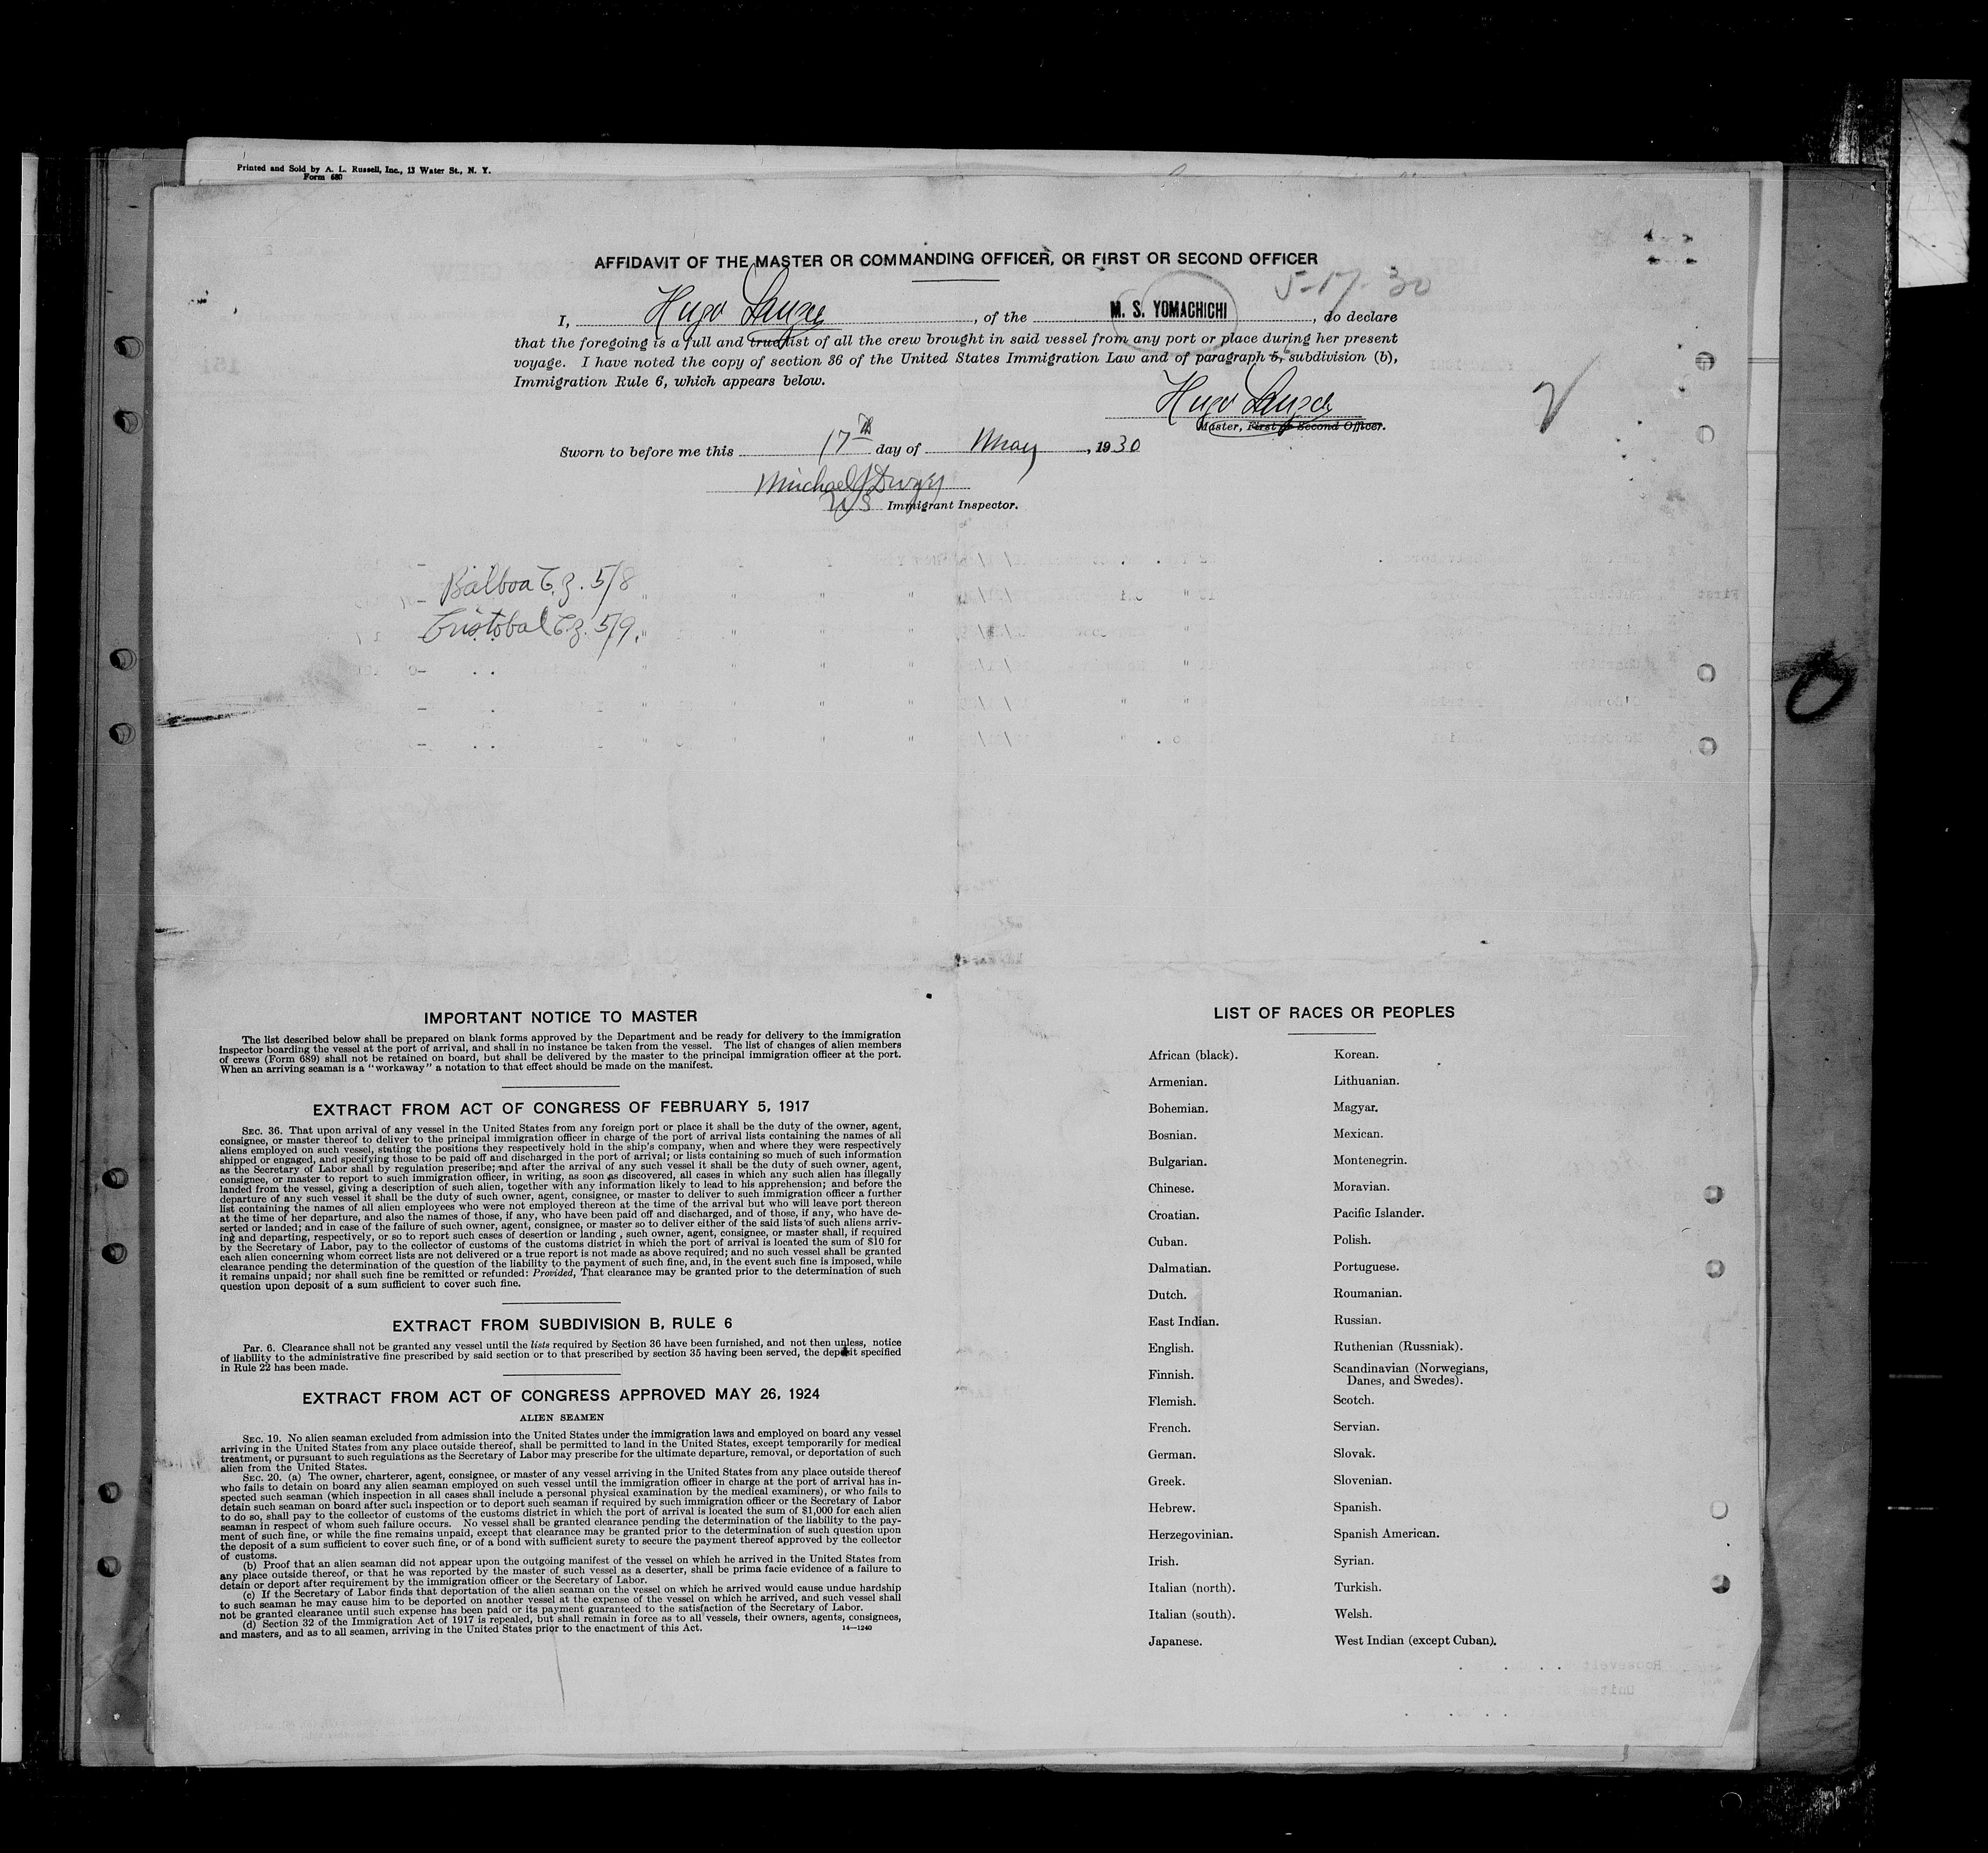 Printed and Sold by A. L. Russell, Inc., 13 Water St., N. Y.
Form 680
AFFIDAVIT OF THE MASTER OR COMMANDING OFFICER, OR FIRST OR SECOND OFFICER
5-17-30
I, Hugo , of the M. S. YOMACHICHI , do declare
that the foregoing is a full and true list of all the crew brought in said vessel from any port or place during her present
voyage. I have noted the copy of section 36 of the United States Immigration Law and of paragraph 5, subdivision (b),
Immigration Rule 6, which appears below.
Hugo
Master, First or Second Officer.
Sworn to before me this 17th day of May , 1930
Michael J Dwyer
US Immigrant Inspector.
Balboa C.Z. 5/8
Cristobal C.Z. 5/9.
IMPORTANT NOTICE TO MASTER
The list described below shall be prepared on blank forms approved by the Department and be ready for delivery to the immigration
inspector boarding the vessel at the port of arrival, and shall in no instance be taken from the vessel. The list of changes of alien members
of crews (Form 689) shall not be retained on board, but shall be delivered by the master to the principal immigration officer at the port.
When an arriving seaman is a "workaway" a notation to that effect should be made on the manifest.
EXTRACT FROM ACT OF CONGRESS OF FEBRUARY 5, 1917
SEC. 36. That upon arrival of any vessel in the United States from any foreign port or place it shall be the duty of the owner, agent,
consignee, or master thereof to deliver to the principal immigration officer in charge of the port of arrival lists containing the names of all
aliens employed on such vessel, stating the positions they respectively hold in the ship's company, when and where they were respectively
shipped or engaged, and specifying those to be paid off and discharged in the port of arrival; or lists containing so much of such information
as the Secretary of Labor shall by regulation prescribe; and after the arrival of any such vessel it shall be the duty of such owner, agent,
consignee, or master to report to such immigration officer, in writing, as soon as discovered, all cases in which any such alien has illegally
landed from the vessel, giving a description of such alien, together with any information likely to lead to his apprehension; and before the
departure of any such vessel it shall be the duty of such owner, agent, consignee, or master to deliver to such immigration officer a further
list containing the names of all alien employees who were not employed thereon at the time of the arrival but who will leave port thereon
at the time of her departure, and also the names of those, if any, who have been paid off and discharged, and of those, if any, who have de-
serted or landed; and in case of the failure of such owner, agent, consignee, or master so to deliver either of the said lists of such aliens arriv-
ing and departing, respectively, or so to report such cases of desertion or landing , such owner, agent, consignee, or master, shall, if required
by the Secretary of Labor, pay to the collector of customs of the customs district in which the port of arrival is located the sum of $10 for
each alien concerning whom correct lists are not delivered or a true report is not made as above required; and no such vessel shall be granted
clearance pending the determination of the question of the liability to the payment of such fine, and, in the event such fine is imposed, while
it remains unpaid; nor shall such fine be remitted or refunded: Provided, That clearance may be granted prior to the determination of such
question upon deposit of a sum sufficient to cover such fine.
EXTRACT FROM SUBDIVISION B, RULE 6
Par. 6. Clearance shall not be granted any vessel until the lists required by Section 36 have been furnished, and not then unless, notice
of liability to the administrative fine prescribed by said section or to that prescribed by section 35 having been served, the deposit specified
in Rule 22 has been made.
EXTRACT FROM ACT OF CONGRESS APPROVED MAY 26, 1924
ALIEN SEAMEN
SEC. 19. No alien seaman excluded from admission into the United States under the immigration laws and employed on board any vessel
arriving in the United States from any place outside thereof, shall be permitted to land in the United States, except temporarily for medical
treatment, or pursuant to such regulations as the Secretary of Labor may prescribe for the ultimate departure, removal, or deportation of such
alien from the United States.
SEC. 20. (a) The owner, charterer, agent, consignee, or master of any vessel arriving in the United States from any place outside thereof
who fails to detain on board any alien seaman employed on such vessel until the immigration officer in charge at the port of arrival has in-
spected such seaman (which inspection in all cases shall include a personal physical examination by the medical examiners), or who fails to
detain such seaman on board after such inspection or to deport such seaman if required by such immigration officer or the Secretary of Labor
to do so, shall pay to the collector of customs of the customs district in which the port of arrival is located the sum of $1,000 for each alien
seaman in respect of whom such failure occurs. No vessel shall be granted clearance pending the determination of the liability to the pay-
ment of such fine, or while the fine remains unpaid, except that clearance may be granted prior to the determination of such question upon
the deposit of a sum sufficient to cover such fine, or of a bond with sufficient surety to secure the payment thereof approved by the collector
of customs.
(b) Proof that an alien seaman did not appear upon the outgoing manifest of the vessel on which he arrived in the United States from
any place outside thereof, or that he was reported by the master of such vessel as a deserter, shall be prima facie evidence of a failure to
detain or deport after requirement by the immigration officer or the Secretary of Labor.
(c) If the Secretary of Labor finds that deportation of the alien seaman on the vessel on which he arrived would cause undue hardship
to such seaman he may cause him to be deported on another vessel at the expense of the vessel on which he arrived, and such vessel shall
not be granted clearance until such expense has been paid or its payment guaranteed to the satisfaction of the Secretary of Labor.
(d) Section 32 of the Immigration Act of 1917 is repealed, but shall remain in force as to all vessels, their owners, agents, consignees,
and masters, and as to all seamen, arriving in the United States prior to the enactment of this Act.
14—1240
LIST OF RACES OR PEOPLES
African (black).
Armenian.
Bohemian.
Bosnian.
Bulgarian.
Chinese.
Croatian.
Cuban.
Dalmatian.
Dutch.
East Indian.
English.
Finnish.
Flemish.
French.
German.
Greek.
Hebrew.
Herzegovinian.
Irish.
Italian (north).
Italian (south).
Japanese.
Korean.
Lithuanian.
Magyar.
Mexican.
Montenegrin.
Moravian.
Pacific Islander.
Polish.
Portuguese.
Roumanian.
Russian.
Ruthenian (Russniak).
Scandinavian (Norwegians,
Danes, and Swedes).
Scotch.
Servian.
Slovak.
Slovenian.
Spanish.
Spanish American.
Syrian.
Turkish.
Welsh.
West Indian (except Cuban).